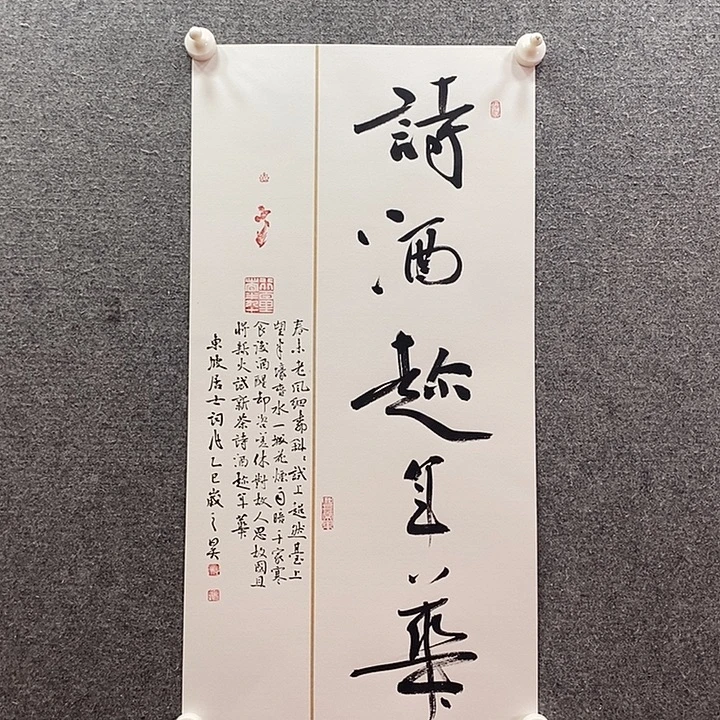 詩酒趂年華
春未老風細柳斜〻試上超然臺上
望半壕春水一城花煙雨暗千家寒
食後酒醒却咨嗟休對故人思故國且
將新火試新茶詩酒趂年華
東坡居士詞 乙巳歲之昊